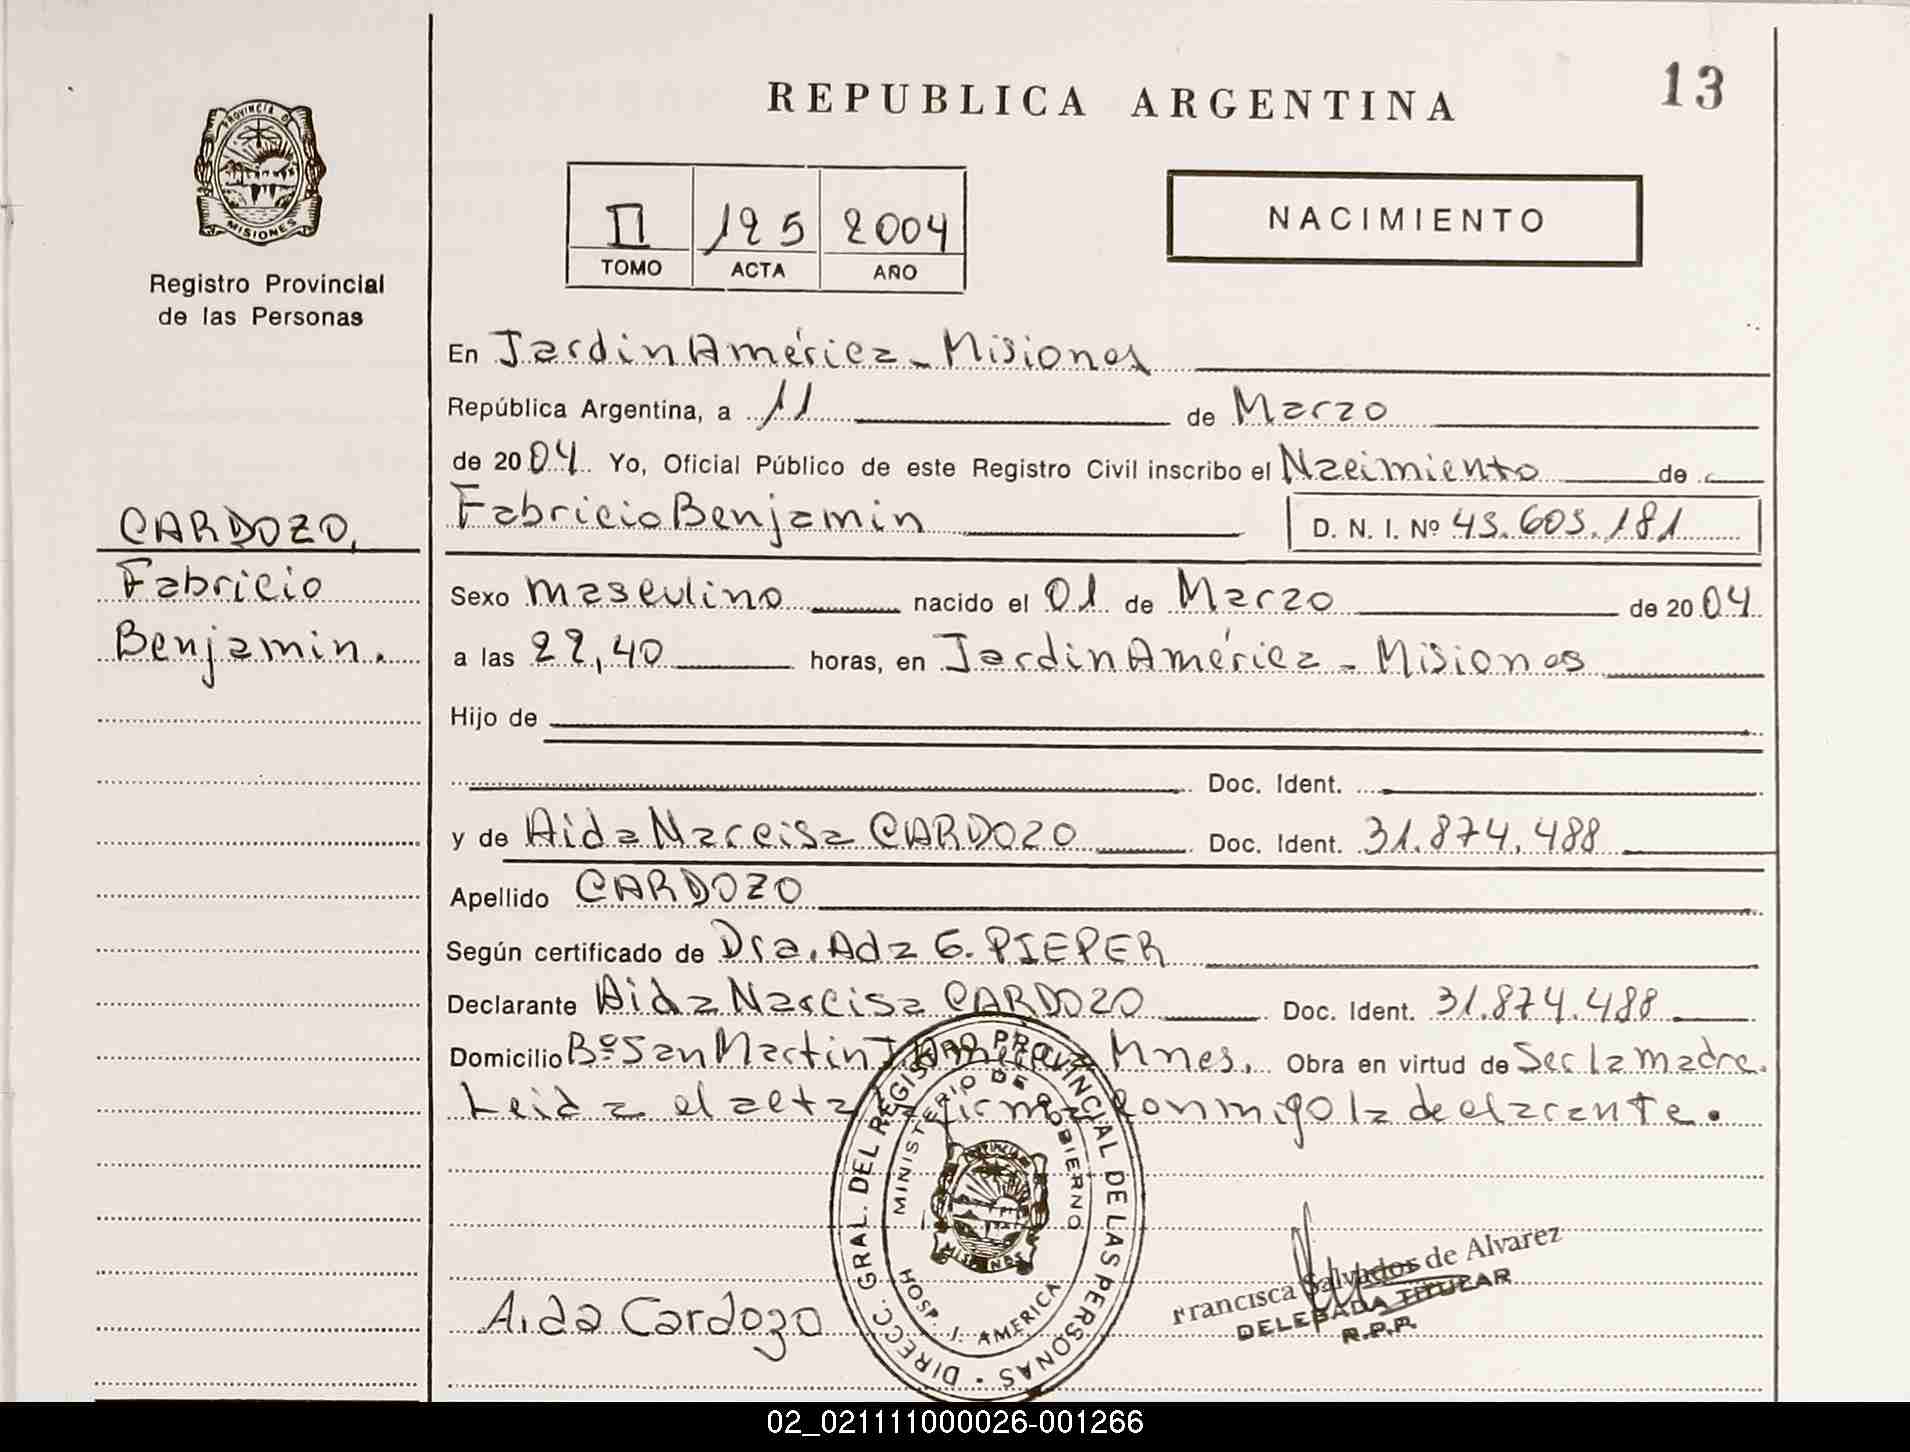 REPUBLICA ARGENTINA
13
PROVINCIA DE
MISIONES
Registro Provincial
de las Personas
II 125 2004
TOMO ACTA AÑO
NACIMIENTO
En Jardin América - Misiones
República Argentina, a 11 de Marzo
de 2004 Yo, Oficial Público de este Registro Civil inscribo el Nacimiento de
Fabricio Benjamin D. N. I. Nº 45.605.181
CARDOZO,
Fabricio
Benjamin.
Sexo masculino nacido el 01 de Marzo de 2004
a las 22,40 horas, en Jardin América - Misiones
Hijo de
Doc. Ident.
y de Aida Narcisa CARDOZO Doc. Ident. 31.874.488
Apellido CARDOZO
Según certificado de Dra. Ada G. PIEPER
Declarante Aida Narcisa CARDOZO Doc. Ident. 31.874.488
Domicilio Bº San Martin J. América Mnes. Obra en virtud de Ser la madre.
Leida el acta la firma conmigo la declarante.
DIRECC. GRAL. DEL REGISTRO PROVINCIAL DE LAS PERSONAS
MINISTERIO DE GOBIERNO
MISIONES
HOSP. J. AMERICA
Aida Cardozo
Francisca Salvados de Alvarez
DELEGADA TITULAR
R.P.P.
02_021111000026-001266